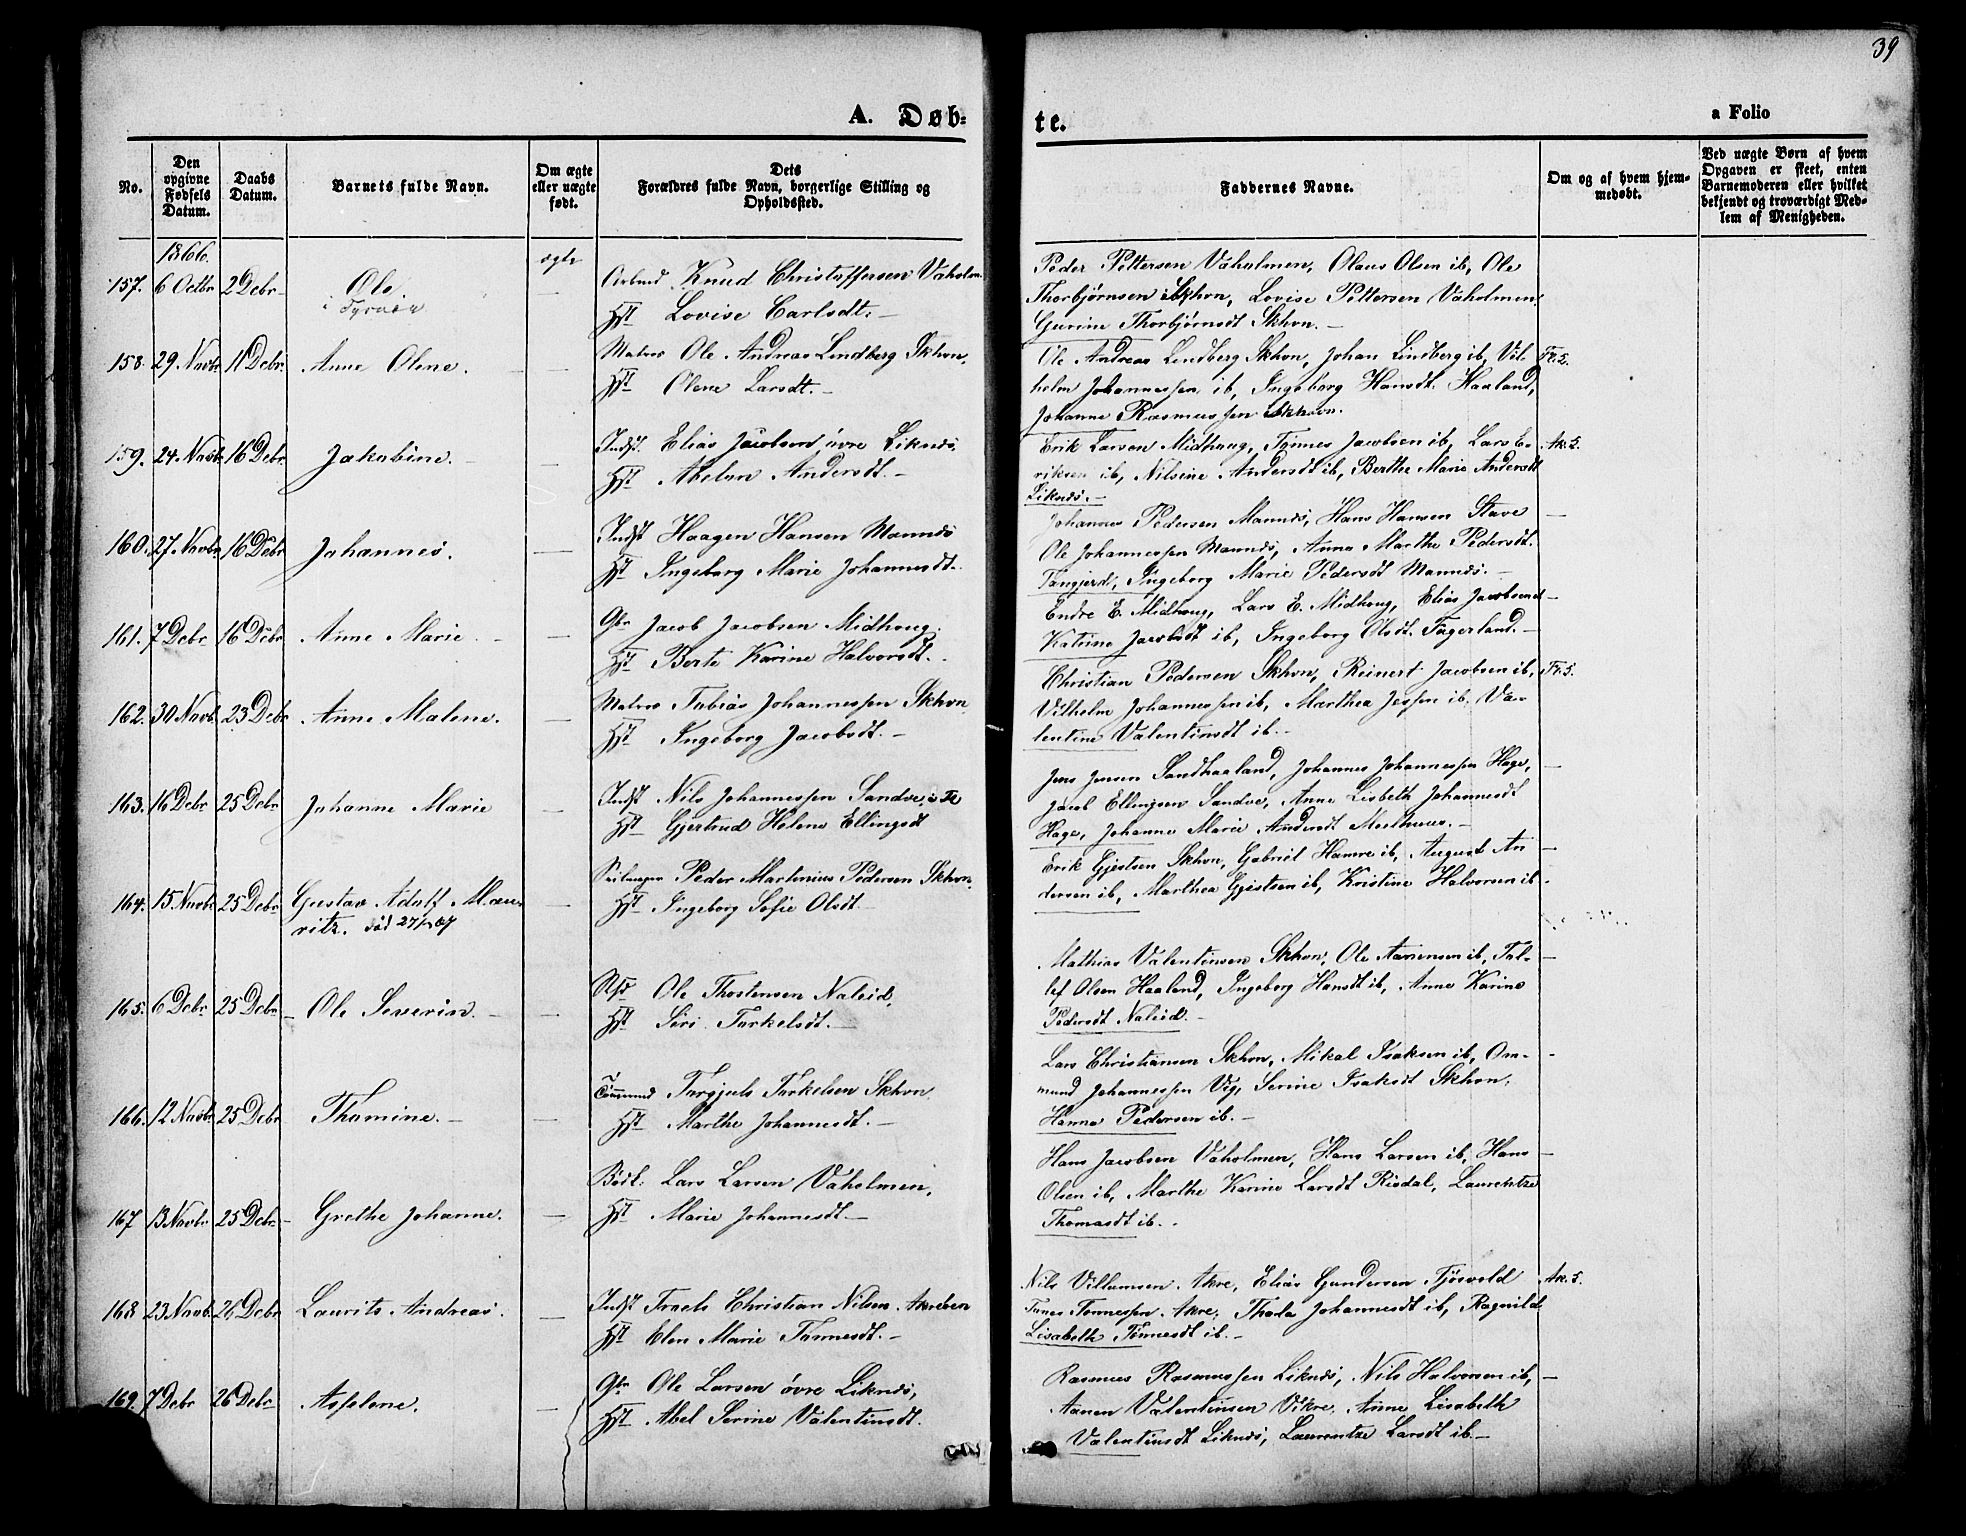 39
A. Døb-
te.
a Folio
No.
Den opgivne Fødsels Datum.
Daabs Datum.
Barnets fulde Navn.
Om ægte eller uægte født.
Dets Forældres fulde Navn, borgerlige Stilling og Opholdssted.
Faddernes Navne.
Om og af hvem hjemmedøbt.
Ved uægte Børn af hvem Opgaven er skeet, enten Barnemoderen eller hvilket bekjendt og troværdigt Medlem af Menigheden.
1866.
157. 6 Octbr 2 Debr Ole ægte Arbmd Knud Christoffersen Vaholm.
Hst Lovise Carlsdt. -
Peder Pettersen Vaholmen, Olaus Olsen ib, Ole
Thorbjørnsen Skhvn, Lovise Pettersen Vaholmen
Gurine Thorbjørnsdt Skhvn. -
158. 29 Novbr 11 Debr. Anne Olene. - Matros Ole Andreas Lindberg Skhvn.
Hst Olene Larsdt. -
Ole Andreas Lindberg Skhvn, Johan Lindberg ib, Vil-
helm Johannessen ib, Ingeborg Hansdt. Haaland,
Johanne Rasmussen Skhavn.
159. 24 Novbr 16 Debr. Jakobine. - Indst. Elias Jacobsen øvre Liknæs.
Hst Abelen Andersdt. -
Erik Larsen Midhoug, Tønnes Jacobsen ib, Lars E-
riksen ib, Nilsine Andersdt ib, Berthe Marie Andersdt
Liknæs. -
160. 27 Novbr 16 Debr Johannes. - Indst Haagen Hansen Mannæs
Hst Ingeborg Marie Johannesdt. -
Johannes Pedersen Mannæs, Hans Hansen Stave -
Ole Johannessen Mannæs, Anne Marthe Pedersdt.
Tangjerd, Ingeborg Marie Pedersdt Mannæs. -
161. 7 Debr 16 Debr Anne Marie - Gbr Jacob Jacobsen Midhoug.
Hst Berte Karine Halvorsdt. -
Endre E. Midhoug, Lars E. Midhoug, Elias Jacobsen -
Katrine Jacobsdt ib, Ingeborg Olsdt. Fagerland. -
162. 30 Novb. 23 Debr Anne Malene. - Matros Tobias Johannessen Skhvn
Hst Ingeborg Jacobsdt. -
Christian Pedersen Skhvn, Reinert Jacobsen ib,
Vilhelm Johannessen ib, Marthea Jessen ib. Va-
lentine Valentinsdt ib. -
163. 16 Debr 25 Debr Johanne Marie - Indst Nils Johannessen Sandve
Hst Gjertrud Helene Ellingsdt
Jens Jensen Sandhaaland, Johannes Johannessen Hage, -
Jacob Ellingsen Sandve, Anne Lisbeth Johannesdt
Hage, Johanne Marie Andersdt Medhuus. -
164. 15 Novbr 25 Debr Gustav Adolf Mau-
ritz. - Peder Martinius Pedersen Skhvn.
Hst Ingeborg Sofie Olsdt -
Erik Gjertsen Skhvn, Gabriel Hamre ib, August An -
dersen ib, Marthea Gjertsen ib, Kristine Halvorsen ib -
165. 6 Debr 25 Debr Ole Severin. - Ole Thostensen Naleid,
Hst Siri Torkelsdt. -
Mathias Valentinsen Skhvn, Ole Aanensen ib, Tol-
lef Olsen Haaland, Ingeborg Hansdt ib, Anne Karine
Pedersdt Naleid. -
166. 12 Novbr. 25 Debr Thomine. - Tømmermd Torkelsen Skhvn.
Hst Marthe Johannesdt. -
Lars Christiansen Skhvn, Mikal Isaksen ib, Om- -
mund Johannessen Vig, Serine Isaksdt Skhvn,
Hanna Pedersen ib. -
167 13 Novbr 25 Debr. Grethe Johanne. - Lars Larsen Vaholmen,
Hst Marie Johannesdt. -
Hans Jacobsen Vaholmen, Hans Larsen ib, Hans -
Olsen ib, Marthe Karine Larsdt Risdal, Laurentze
Thomasdt ib. -
168 23 Novb. 26 Debr Laurits Andreas. - Indst Troels Christian Nilsen
Hst Elen Marie Tønnesdt. -
Nils Villumsen Akre, Elias Gundersen Tjøsvold Ak. 5.
Tønnessen Akre, Thala Johannesdt ib, Ragnild
Lisabeth Tønnesdt ib. -
169. 7 Debr 26 Debr Asselene. - Gbr Ole Larsen øvre Liknæs,
Hst Abel Serine Valentinsdt.
Rasmus Rasmussen Liknæs, Nils Halvorsen ib, -
Aanen Valentinsen Vikre, Anne Lisabeth
Valentinsdt Liknæs, Laurentze Larsdt ib -